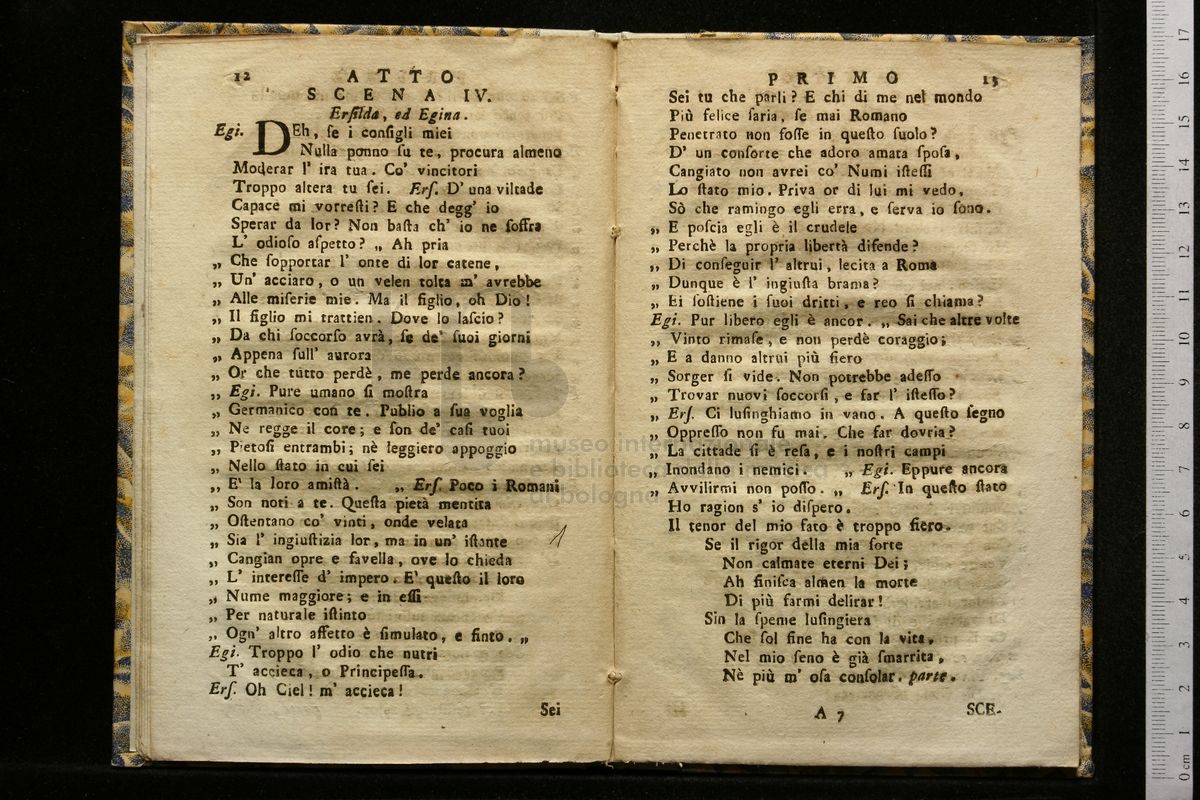 12 ATTO
SCENA IV.
Erſilda, ed Egina.
Egi. DEh, ſe i conſigli miei
Nulla ponno ſu te, procura almeno
Moderar l' ira tua. Co' vincitori
Troppo altera tu ſei. Erſ. D' una viltade
Capace mi vorreſti? E che degg' io
Sperar da lor? Non baſta ch' io ne ſoffra
L' odioſo aſpetto? „ Ah pria
„ Che ſopportar l' onte di lor catene,
„ Un' acciaro, o un velen tolta m' avrebbe
„ Alle miſerie mie. Ma il figlio, oh Dio!
„ Il figlio mi trattien. Dove lo laſcio?
„ Da chi ſoccorſo avrà, ſe de' ſuoi giorni
„ Appena ſull' aurora
„ Or che tutto perdè, me perde ancora?
„ Egi. Pure umano ſi moſtra
„ Germanico con te. Publio a ſua voglia
„ Ne regge il core; e ſon de' caſi tuoi
„ Pietoſi entrambi; nè leggiero appoggio
„ Nello ſtato in cui ſei
„ E' la loro amiſtà. „ Erſ. Poco i Romani
„ Son noti a te. Queſta pietà mentita
„ Oſtentano co' vinti, onde velata
„ Sia l' ingiuſtizia lor, ma in un' iſtante
„ Cangian opre e favella, ove lo chieda
„ L' intereſſe d' impero. E' queſto il loro
„ Nume maggiore; e in eſſi
„ Per naturale iſtinto
„ Ogn' altro affetto è ſimulato, e finto. „
Egi. Troppo l' odio che nutri
T' accieca, o Principeſſa.
Erſ. Oh Ciel! m' accieca!
Sei
1
PRIMO 13
Sei tu che parli? E chi di me nel mondo
Più felice ſaria, ſe mai Romano
Penetrato non foſſe in queſto ſuolo?
D' un conſorte che adoro amata ſpoſa,
Cangiato non avrei co' Numi iſteſſi
Lo ſtato mio. Priva or di lui mi vedo,
Sò che ramingo egli erra, e ſerva io ſono.
„ E poſcia egli è il crudele
„ Perchè la propria libertà difende?
„ Di conſeguir l' altrui, lecita a Roma
„ Dunque è l' ingiuſta brama?
„ Ei ſoſtiene i ſuoi dritti, e reo ſi chiama?
Egi. Pur libero egli è ancor. „ Sai che altre volte
„ Vinto rimaſe, e non perdè coraggio;
„ E a danno altrui più fiero
„ Sorger ſi vide. Non potrebbe adeſſo
„ Trovar nuovi ſoccorſi, e far l' iſteſſo?
„ Erſ. Ci luſinghiamo in vano. A queſto ſegno
„ Oppreſſo non fu mai. Che far dovria?
„ La cittade ſi è reſa, e i noſtri campi
„ Inondano i nemici. „ Egi. Eppure ancora
„ Avvilirmi non poſſo. „ Erſ. In queſto ſtato
Ho ragion s' io diſpero.
Il tenor del mio fato è troppo fiero.
Se il rigor della mia ſorte
Non calmate eterni Dei;
Ah finiſca almen la morte
Di più farmi delirar!
Sin la ſpeme luſingiera
Che ſol fine ha con la vita,
Nel mio ſeno è già ſmarrita,
Nè più m' oſa conſolar. parte.
A 7 SCE-